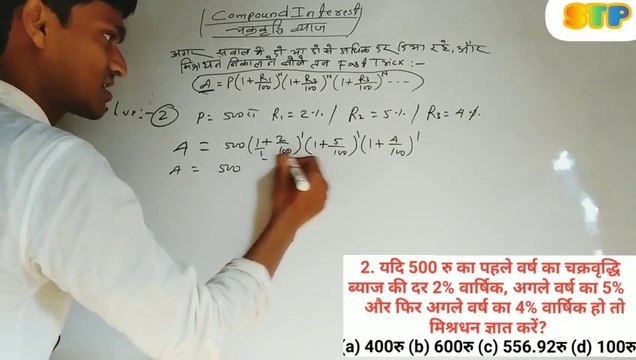 Compound Interest
चक्रवृद्धि ब्याज
STP
अगर सवाल में दो या दो से अधिक दर दिया रहे, और
मिश्रधन निकालने बोले तब Fast Trick:-
A = P(1+R₁/100)ⁿ(1+R₂/100)ⁿ(1+R₃/100)ⁿ...
2 P = 500रु R₁ = 2% / R₂ = 5% / R₃ = 4%
A = 500(1/1+2/100)¹(1+5/100)¹(1+4/100)¹
A = 500
2. यदि 500 रु का पहले वर्ष का चक्रवृद्धि
ब्याज की दर 2% वार्षिक, अगले वर्ष का 5%
और फिर अगले वर्ष का 4% वार्षिक हो तो
मिश्रधन ज्ञात करें?
(a) 400रु (b) 600रु (c) 556.92रु (d) 100रु